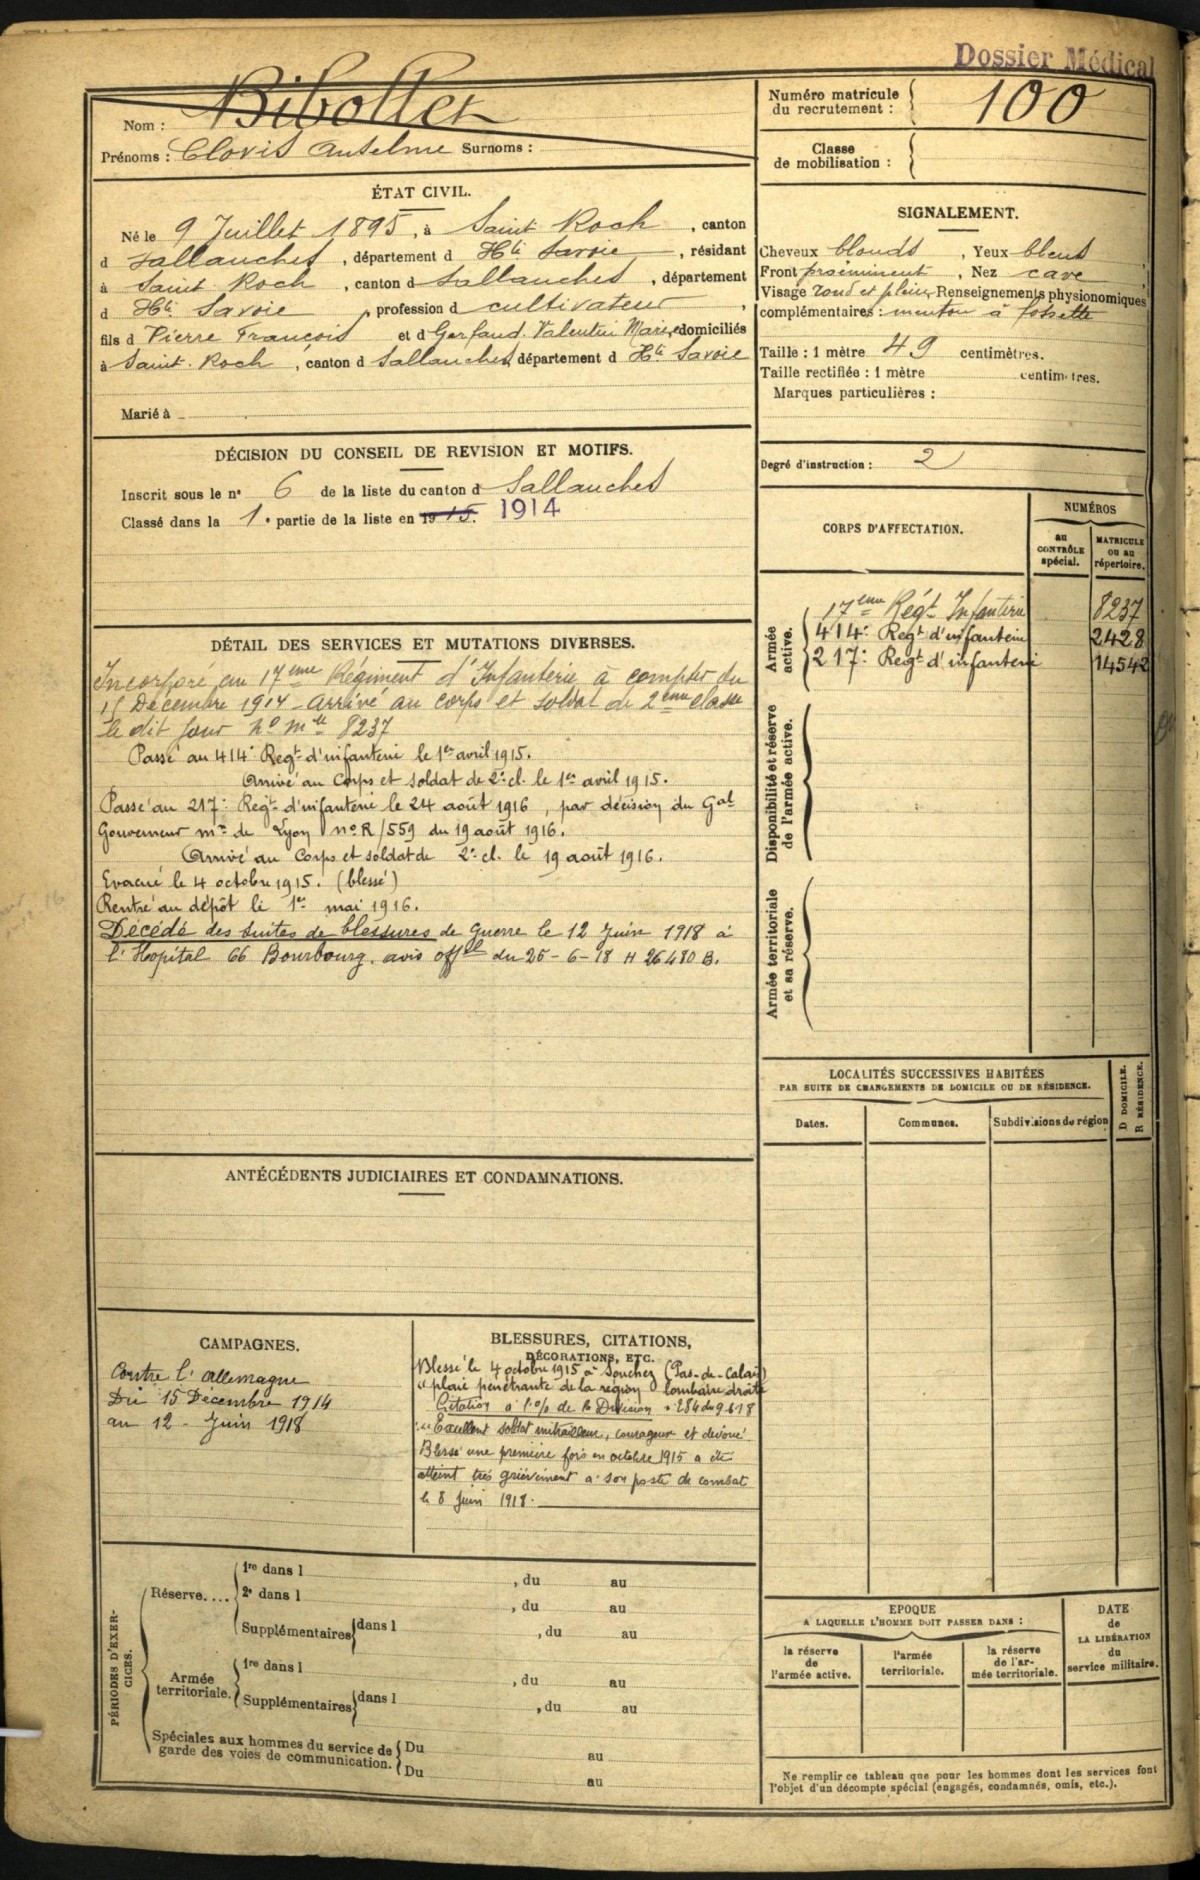 Dossier Médical
Nom : Bibollet
Prénoms : Clovis Anselme Surnoms :
Numéro matricule
du recrutement : 100
Classe
de mobilisation :
ÉTAT CIVIL.
Né le 9 Juillet 1895, à Saint Roch, canton
d Sallanches, département d Hte Savoie, résidant
à Saint Roch, canton d Sallanches, département
d Hte Savoie, profession d cultivateur,
fils d Pierre François et d Gerfaud Valentin Marie, domiciliés
à Saint-Roch, canton d Sallanches, département d Hte Savoie
Marié à
SIGNALEMENT.
Cheveux blonds, Yeux bleus
Front proéminent, Nez cave
Visage rond et plein, Renseignements physionomiques
complémentaires : menton à fossette
Taille : 1 mètre 49 centimètres.
Taille rectifiée : 1 mètre centimètres.
Marques particulières :
Degré d'instruction : 2
DÉCISION DU CONSEIL DE REVISION ET MOTIFS.
Inscrit sous le n° 6 de la liste du canton d Sallanches
Classé dans la 1e partie de la liste en 1915. 1914
CORPS D'AFFECTATION.
NUMÉROS
au
CONTRÔLE
spécial.
MATRICULE
ou au
répertoire.
Armée
active.
17eme Régt Infanterie 8237
414e Regt d'infanterie 2428
217e Regt d'infanterie 14542
Disponibilité et réserve
de l'armée active.
Armée territoriale
et sa réserve.
DÉTAIL DES SERVICES ET MUTATIONS DIVERSES.
Incorporé au 17eme Régiment d'Infanterie à compter du
15 Décembre 1914 - Arrivé au corps et soldat de 2eme classe
le dit jour No mle 8237
Passé au 414e Regt d'infanterie le 1er avril 1915.
Arrivé au Corps et soldat de 2e cl. le 1er avril 1915.
Passé au 217e Regt d'infanterie le 24 août 1916, par décision du Gal
Gouverneur mre de Lyon no R/559 du 19 août 1916.
Arrivé au Corps et soldat de 2e cl. le 19 août 1916.
Evacué le 4 octobre 1915. (blessé)
Rentré au dépôt le 1er mai 1916.
Décédé des suites de blessures de guerre le 12 Juin 1918 à
l'Hopital 66 Bourbourg. avis offel du 25-6-18 H 26480 B.
LOCALITÉS SUCCESSIVES HABITÉES
PAR SUITE DE CHANGEMENTS DE DOMICILE OU DE RÉSIDENCE.
Dates.
Communes.
Subdivisions de région
D DOMICILE.
R RÉSIDENCE.
ANTÉCÉDENTS JUDICIAIRES ET CONDAMNATIONS.
CAMPAGNES.
Contre l'Allemagne
Du 15 Décembre 1914
au 12 - Juin 1918
BLESSURES, CITATIONS,
DÉCORATIONS, ETC.
Blessé le 4 octobre 1915 à Souchez (Pas-de-Calais)
"plaie pénétrante de la région lombaire droite
Citation à l'o/ de la Division n° 284 du 9.6.18
"Excellent soldat mitrailleur, courageux et dévoué
Blessé une première fois en octobre 1915 a été
atteint très grièvement à son poste de combat
le 8 Juin 1918.
PÉRIODES D'EXER-
CICES.
Réserve....
1re dans l , du au
2e dans l , du au
Supplémentaires dans l , du au
Armée
territoriale.
1re dans l , du au
Supplémentaires dans l , du au
Spéciales aux hommes du service de
garde des voies de communication.
Du au
Du au
EPOQUE
A LAQUELLE L'HOMME DOIT PASSER DANS :
la réserve
de
l'armée active.
l'armée
territoriale.
la réserve
de l'ar-
mée territoriale.
DATE
de
LA LIBÉRATION
du
service militaire.
Ne remplir ce tableau que pour les hommes dont les services font
l'objet d'un décompte spécial (engagés, condamnés, omis, etc.).